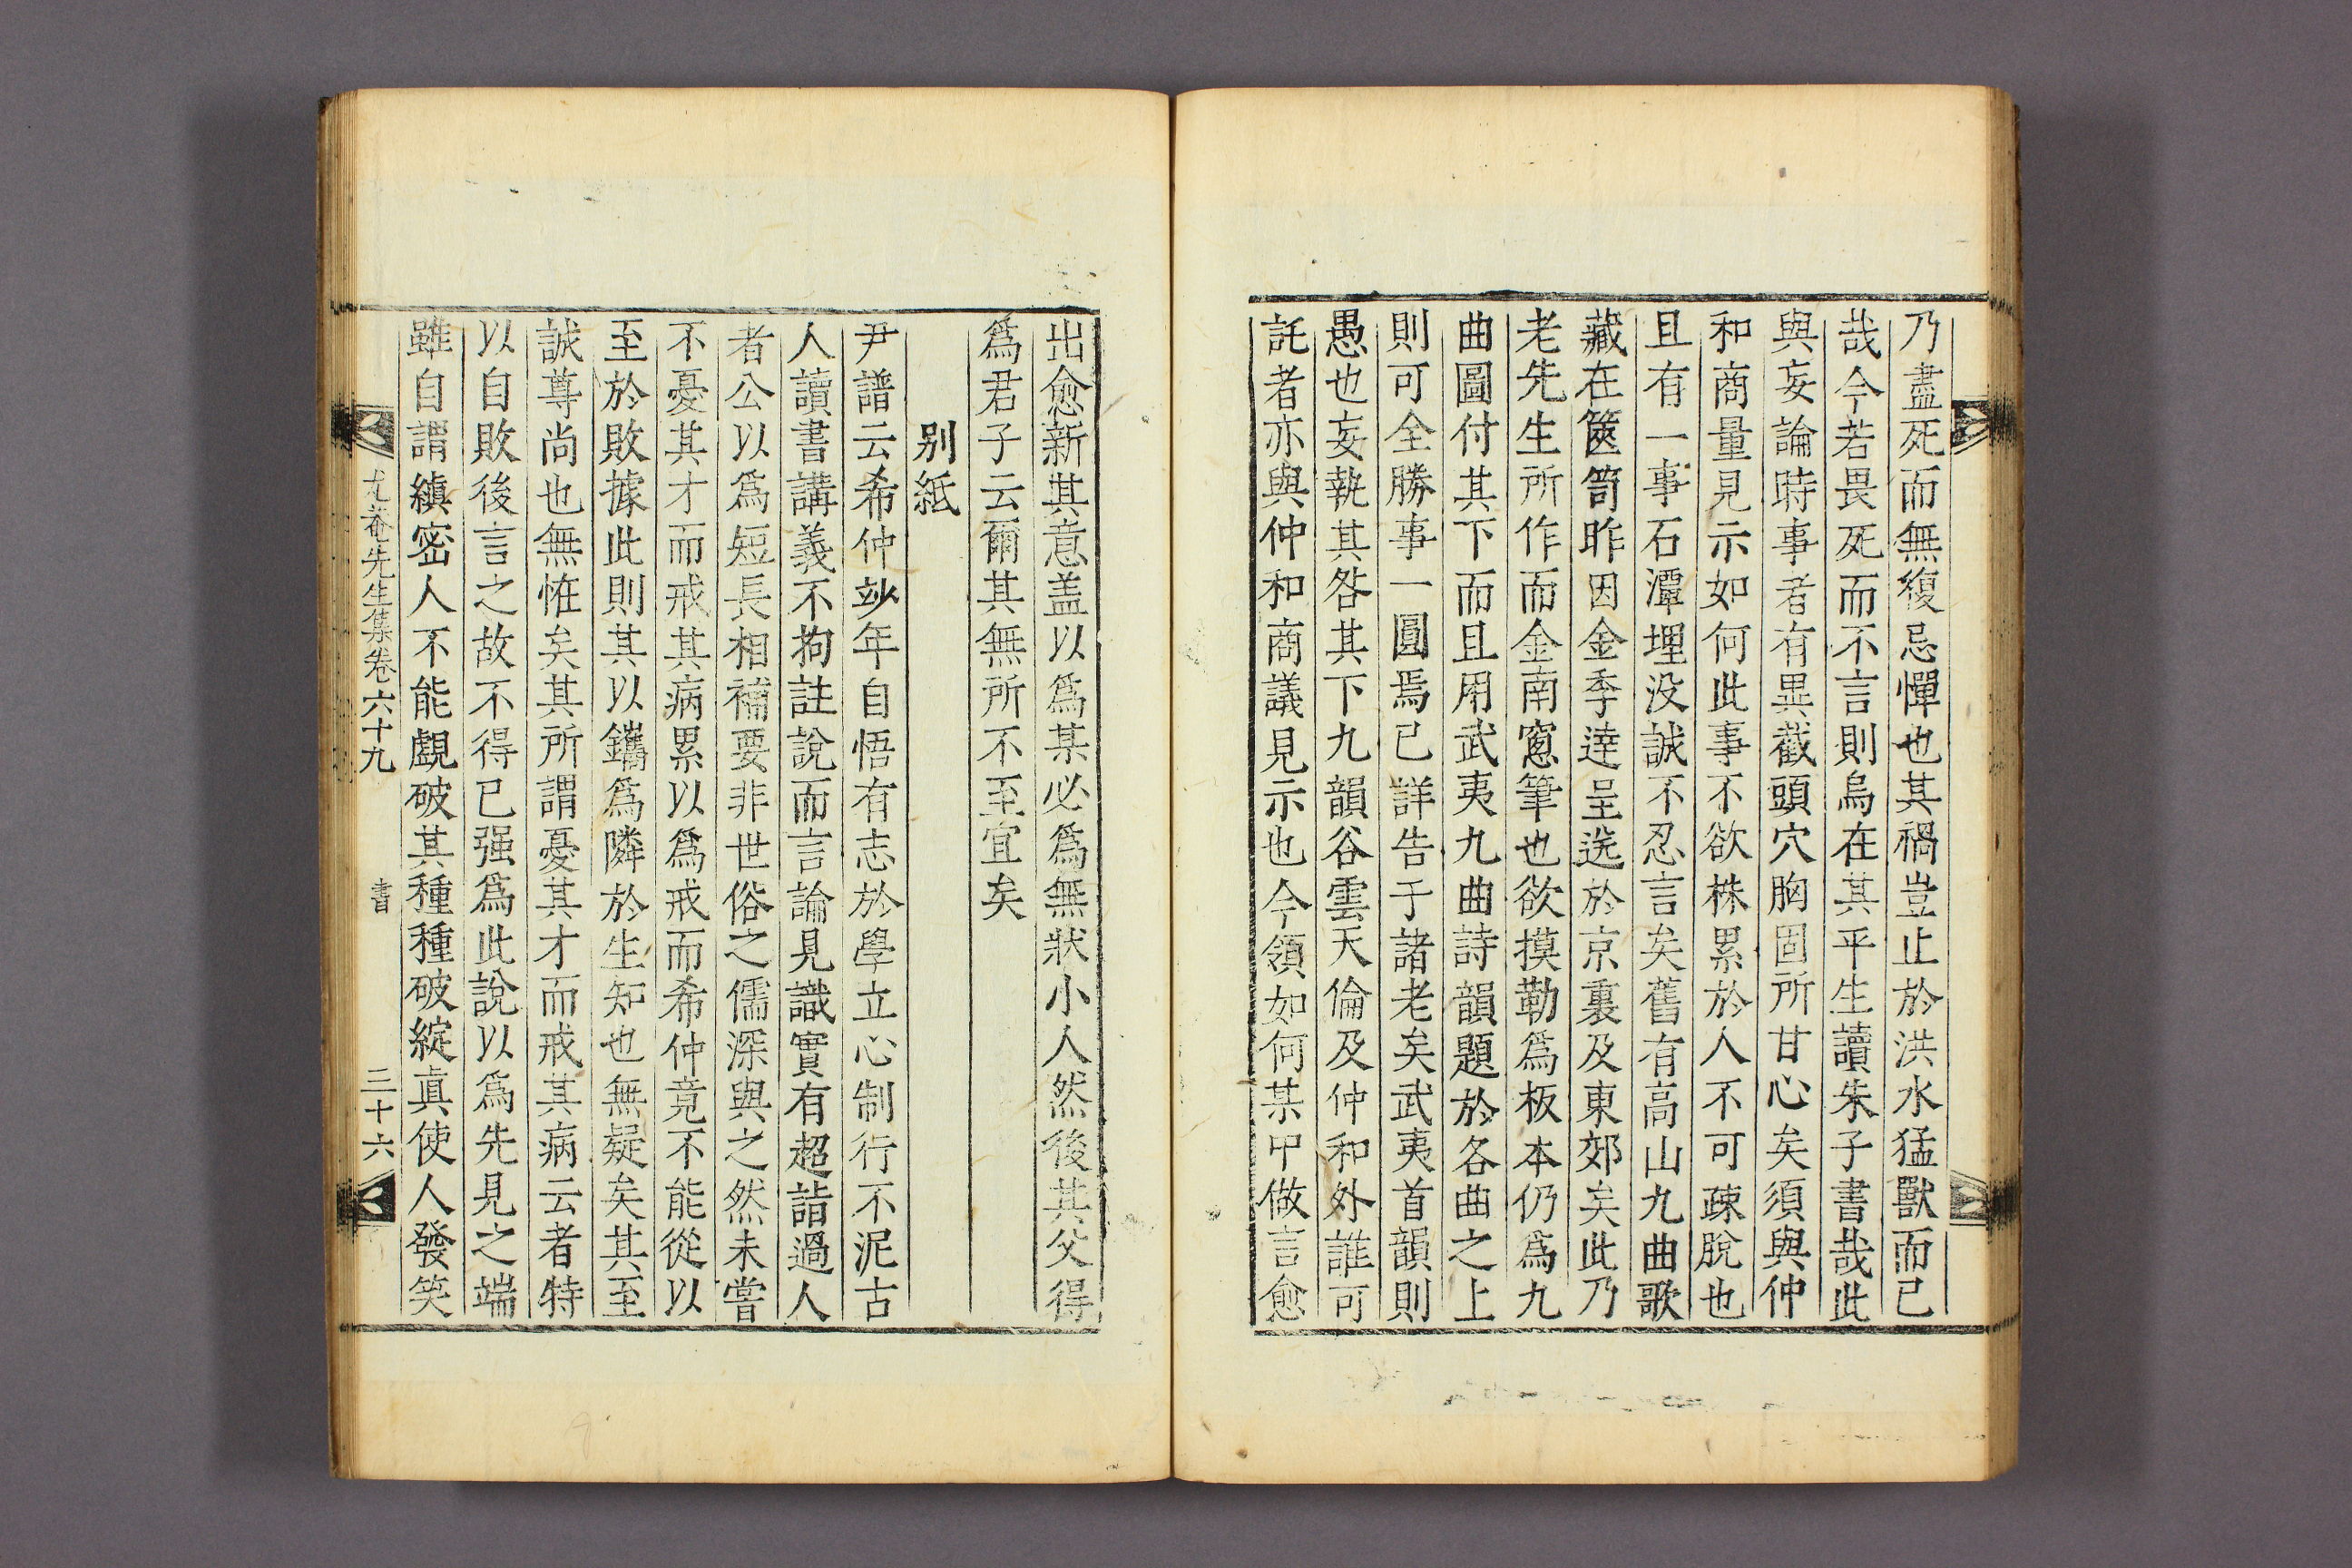 乃盡死而無復忌憚也其禍豈止於洪水猛獸而已
哉今若畏死而不言則烏在其平生讀朱子書哉此
與妄論時事者有異截頭穴胸固所甘心矣須與仲
和商量見示如何此事不欲株累於人不可疎脫也
且有一事石潭埋没誠不忍言矣舊有高山九曲歌
藏在篋笥昨因金季達呈送於京裏及東郊矣此乃
老先生所作而金南窓筆也欲摸勒爲板本仍爲九
曲圖付其下而且用武夷九曲詩韻題於各曲之上
則可全勝事一圓焉已詳告于諸老矣武夷首韻則
愚也妄執其咎其下九韻谷雲天倫及仲和外誰可
託者亦與仲和商議見示也今領如何某甲做言愈
出愈新其意盖以爲某必爲無狀小人然後其父得
爲君子云爾其無所不至宜矣
別紙
尹譜云希仲妙年自悟有志於學立心制行不泥古
人讀書講義不拘註說而言論見識實有超詣過人
者公以爲短長相補要非世俗之儒深與之然未嘗
不憂其才而戒其病累以爲戒而希仲竟不能從以
至於敗據此則其以鑴爲隣於生知也無疑矣其至
誠尊尚也無恠矣其所謂憂其才而戒其病云者特
以自敗後言之故不得已强爲此說以爲先見之端
雖自謂縝密人不能覰破其種種破綻眞使人發笑
尤菴先生集卷六十九 書 三十六